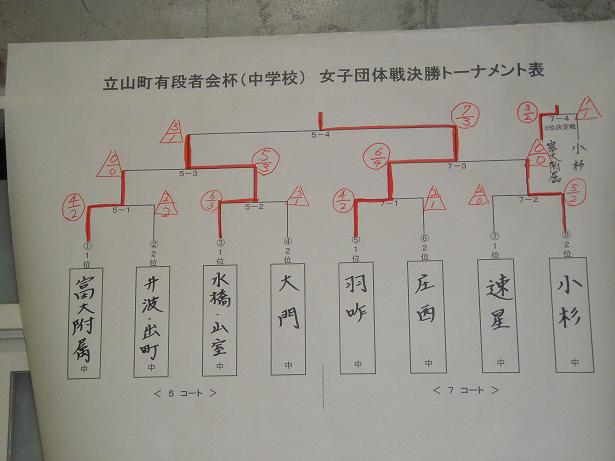 立山町有段者会杯(中学校) 女子団体戦決勝トーナメント表
7/3
3/2
7-4
1/1
3位決定戦
富大附属
小杉
3/1
5-4
0/0
5-3
5/3
6/4
7-3
0/0
4/2
5-1
2/2
6/3
5-2
3/1
4/2
7-1
7-2
5/2
① 1位
② 2位
③ 1位
④ 2位
⑤ 1位
⑥ 2位
⑦ 1位
⑧ 2位
富大附属 中
井波・出町 中
水橋・山室 中
大門 中
羽咋 中
庄西 中
速星 中
小杉 中
< 5 コート >
< 7 コート >